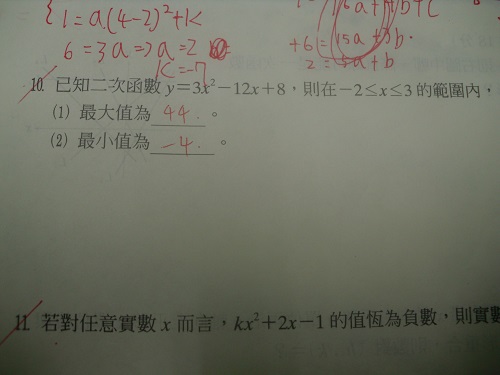 1=a(4-2)²+k
6=3a⇒a=2
k=-7
+6=15a+3b
2=5a+b
10. 已知二次函數 y=3x²-12x+8，則在-2≤x≤3 的範圍內，
(1) 最大值為 44. 。
(2) 最小值為 -4. 。
11. 若對任意實數 x 而言，kx²+2x-1 的值恆為負數，則實數